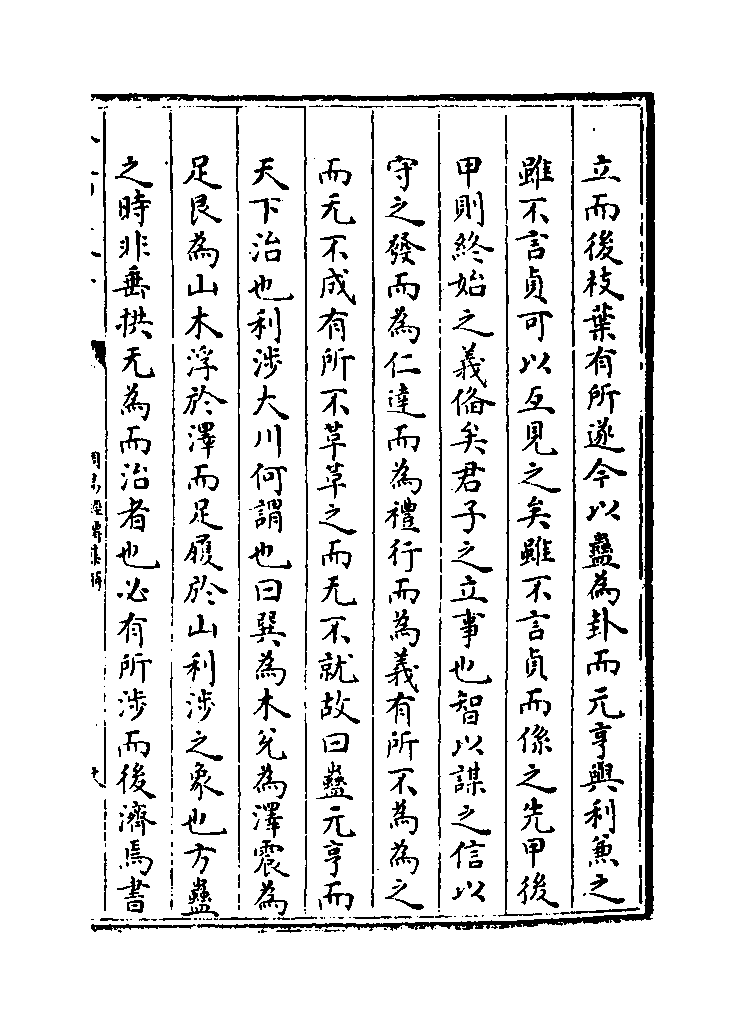 立而後枝葉有所遂今以蠱為卦而元亨與利兼之
雖不言貞可以互見之矣雖不言貞而係之先甲後
甲則終始之義俻矣君子之立事也智以謀之信以
守之發而為仁達而為禮行而為義有所不為為之
而无不成有所不革革之而无不就故曰蠱元亨而
天下治也利涉大川何謂也曰巽為木兊為澤震為
足艮為山木浮於澤而足履於山利涉之象也方蠱
之時非垂拱无為而治者也必有所涉而後濟焉書
周易經傳集解